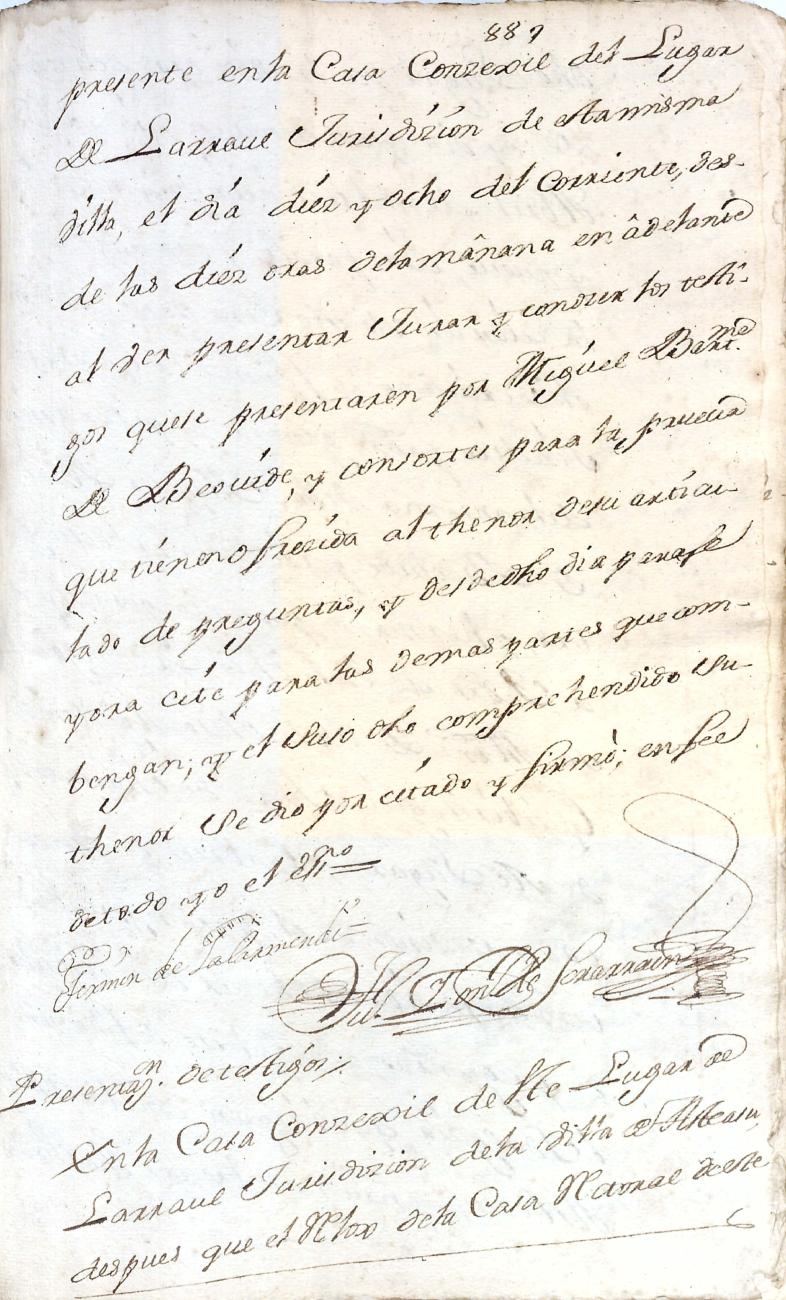 889
presente en la Casa Conzexil del Lugar
de Larraul Jurisdizion de esta misma
Villa, el dia diez y ocho del corriente, des-
de las diez oras de la mañana en adelante
al ver presentar Jurar y conozer los testi-
gos que se presentaren por Miguel Bart.me
de Beovide, y consortes para la prueva
que tienen ofrezida al thenor de su articu-
lado de preguntas, y desde dho dia para fe
y ora cite para las demas partes que com-
bengan; y el suso dho comprehendido su
thenor se dio por citado y firmó; en fee
de todo yo el essno
Fermin de Salarmendi
Presentazn. de testigos
En la Casa Conzexil de este Lugar de
Larraul Jurisdizion de la Villa de Asteasu,
despues que el Relox de la Casa de este